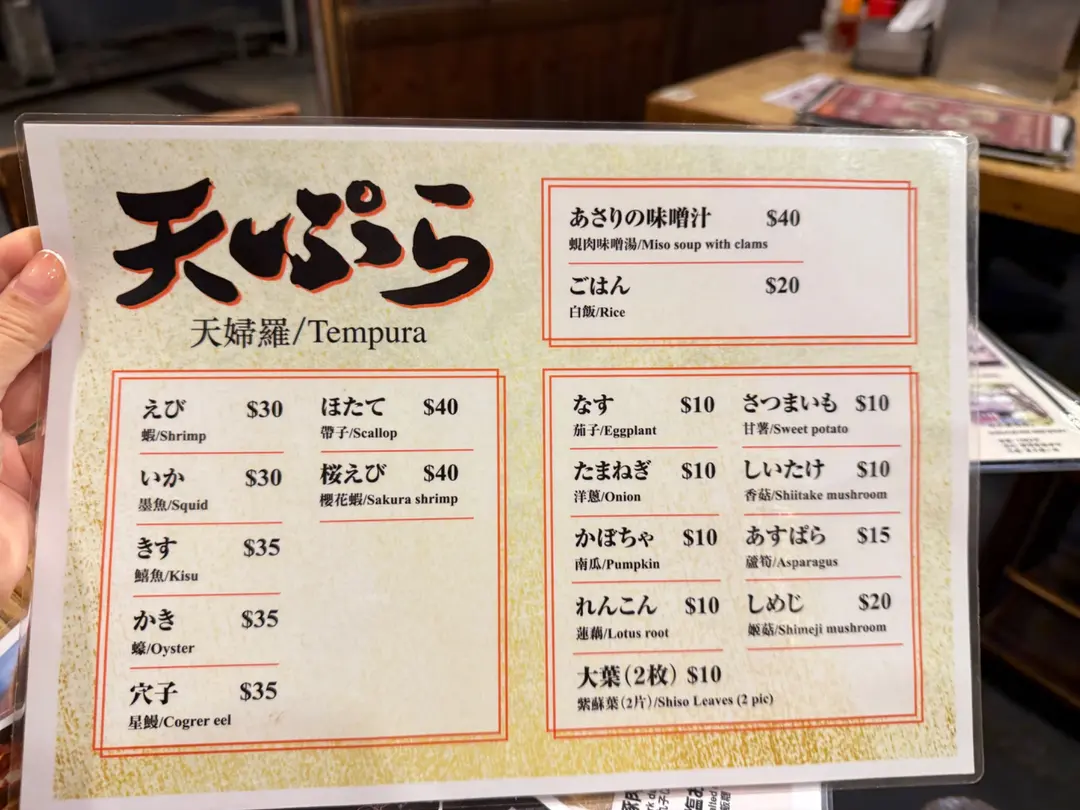 天ぷら
天婦羅/Tempura
あさりの味噌汁 $40
蜆肉味噌湯/Miso soup with clams
ごはん $20
白飯/Rice
えび $30
蝦/Shrimp
いか $30
墨魚/Squid
きす $35
鱚魚/Kisu
かき $35
蠔/Oyster
穴子 $35
星鰻/Cogrer eel
ほたて $40
帶子/Scallop
桜えび $40
櫻花蝦/Sakura shrimp
なす $10
茄子/Eggplant
たまねぎ $10
洋蔥/Onion
かぼちゃ $10
南瓜/Pumpkin
れんこん $10
蓮藕/Lotus root
大葉(2枚) $10
紫蘇葉(2片)/Shiso Leaves (2 pic)
さつまいも $10
甘薯/Sweet potato
しいたけ $10
香菇/Shiitake mushroom
あすぱら $15
蘆筍/Asparagus
しめじ $20
姬菇/Shimeji mushroom